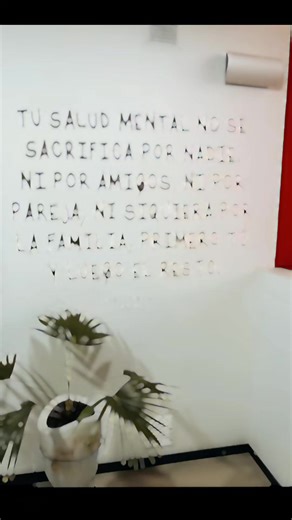 TU SALUD MENTAL NO SE
SACRIFICA POR NADIE,
NI POR AMIGOS, NI POR
PAREJA, NI SIQUIERA POR
LA FAMILIA, PRIMERO TÚ
Y LUEGO EL RESTO.